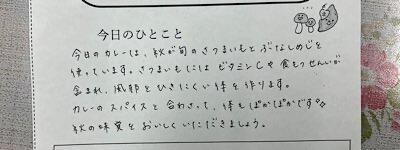 今日のひとこと
今日のカレーは、秋が旬のさつまいもとぶなしめじを
使っています。さつまいもにはビタミンCや食もつせんいが
含まれ、風邪をひきにくい体を作ります。
カレーのスパイスと合わさって、体もぽかぽかです。
秋の味覚をおいしくいただきましょう。